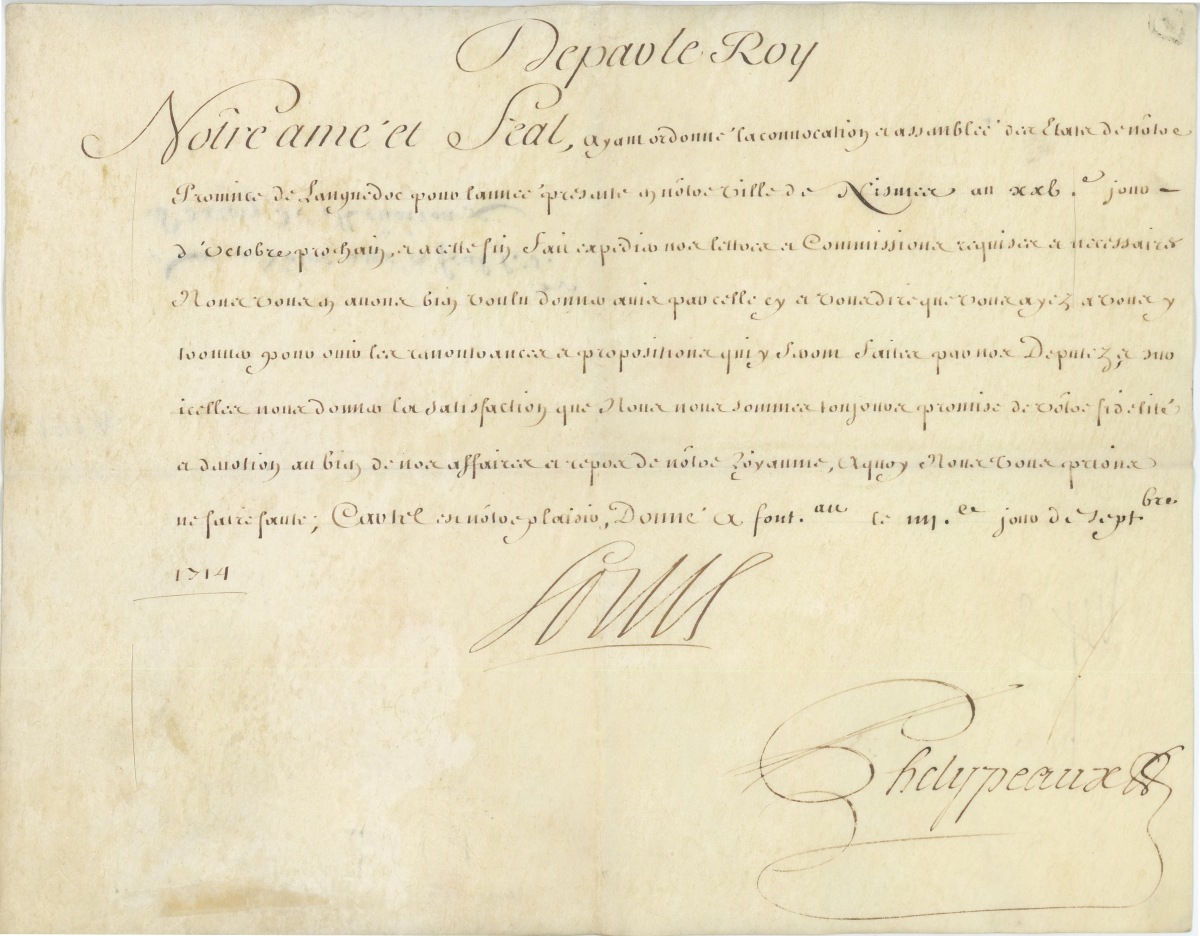 De par le Roy
Nôtre amé et Feal, ayant ordonné la convocation et assemblée des Etats de nôtre
Province de Languedoc pour l'année presente en nôtre ville de Nismes au xxve. jour
d'Octobre prochain, et a cette fin fait expedier nos lettres et Commissions requises et necessaires
Nous vous en avons bien voulu donner avis par celle cy et vous dire que vous ayez a vous y
trouver pour ouir les remontrances et propositions qui y seront faites par nos Deputez, et sur
icelles nous donner la satisfaction que Nous nous sommes toujours promise de vôtre fidelité
et devotion au bien de nos affaires et repos de nôtre Royaume, A quoy Nous vous prions
ne faire faute; Car tel est nôtre plaisir, Donné a Font.au le iiii.e jour de Septbre
1714
Louis
Phelypeaux